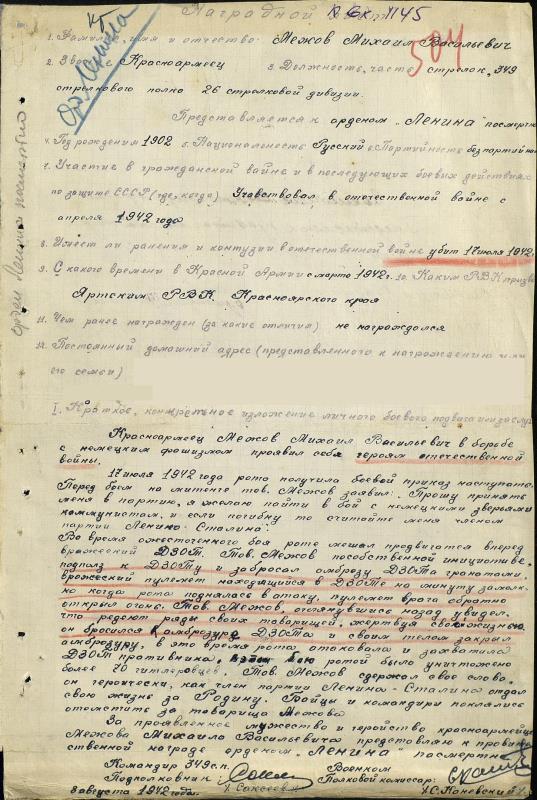 Наградной
1. Фамилия, имя и отчество Межов Михаил Васильевич
2. Звание Красноармеец 3. Должность, часть стрелок, 349
504
стрелкового полка 26 стрелковой дивизии.
Представляется к орденом „Ленина" посмертно
4. Год рождения 1902 5. Национальность Русский 6. Партийность беспартийн
7. Участие в гражданской войне и в последующих боевых действиях
по защите СССР (где, когда) Учавствовал в отечественной войне с
апреля 1942 года
8. Имеет ли ранения и контузии в отечественной войне убит 17 июля 1942г
9. С какого времени в Красной Армии с марта 1942 г. 10. Каким РВК призва
РВК Красноярского края
11. Чем ранее награжден (за какие отличия) не награждался
12. Постоянный домашний адрес (представленного к награждению или
его семьи)
I. Краткое, конкретное изложение личного боевого подвига или заслуг
Красноармеец Межов Михаил Васильевич в борьбе
с немецким фашизмом проявил себя героям отечественной
войны.
17 июля 1942 года рота получила боевой приказ наступать.
Перед боем на митенге тов. Межов заявил: Прошу принять
меня в партию, я желаю пойти в бой с немецкими зверями
коммунистам, и если погибну то считайте меня членом
партии Ленина-Сталина.
Во время ожесточенного боя роте мешал продвигатся вперед
вражеский ДЗОТ. Тов. Межов по собственной инициативе
подполз к ДЗОТу и забросал амбразу ДЗОТа гранатами.
вражеский пулемет находящийся в ДЗОТе на минуту замолк.
но когда рота поднялась в атаку, пулемет врага обратно
открыл огонь. Тов. Межов, оглянувшись назад увидел,
что редеют ряды своих товарищей, жертвуя своей жизнью
он бросился к амбразуре ДЗОТа и своим телом закрыл
амбразуру, в это время рота атаковала и захватила
ДЗОТ противника. бою ротой было уничтожено
более 20 гитлеровцев. Тов. Межов сдержал свое слово.
он героически, как член партии Ленина-Сталина отдал
свою жизнь за Родину. Бойцы и командиры поклялись
отомстить за товарища Межова
За проявленное мужество и геройство красноармейца
Межова Михаила Васильевича представляю к правите
ственной награде орденом „Ленина" - посмертно
Командир 349 с.п. Военком
Подполковник: Полковой комиссар:
/Саксеев/ /Каневский/
8 августа 1942 года.
Орд. Ленина
орден Ленина посмертно